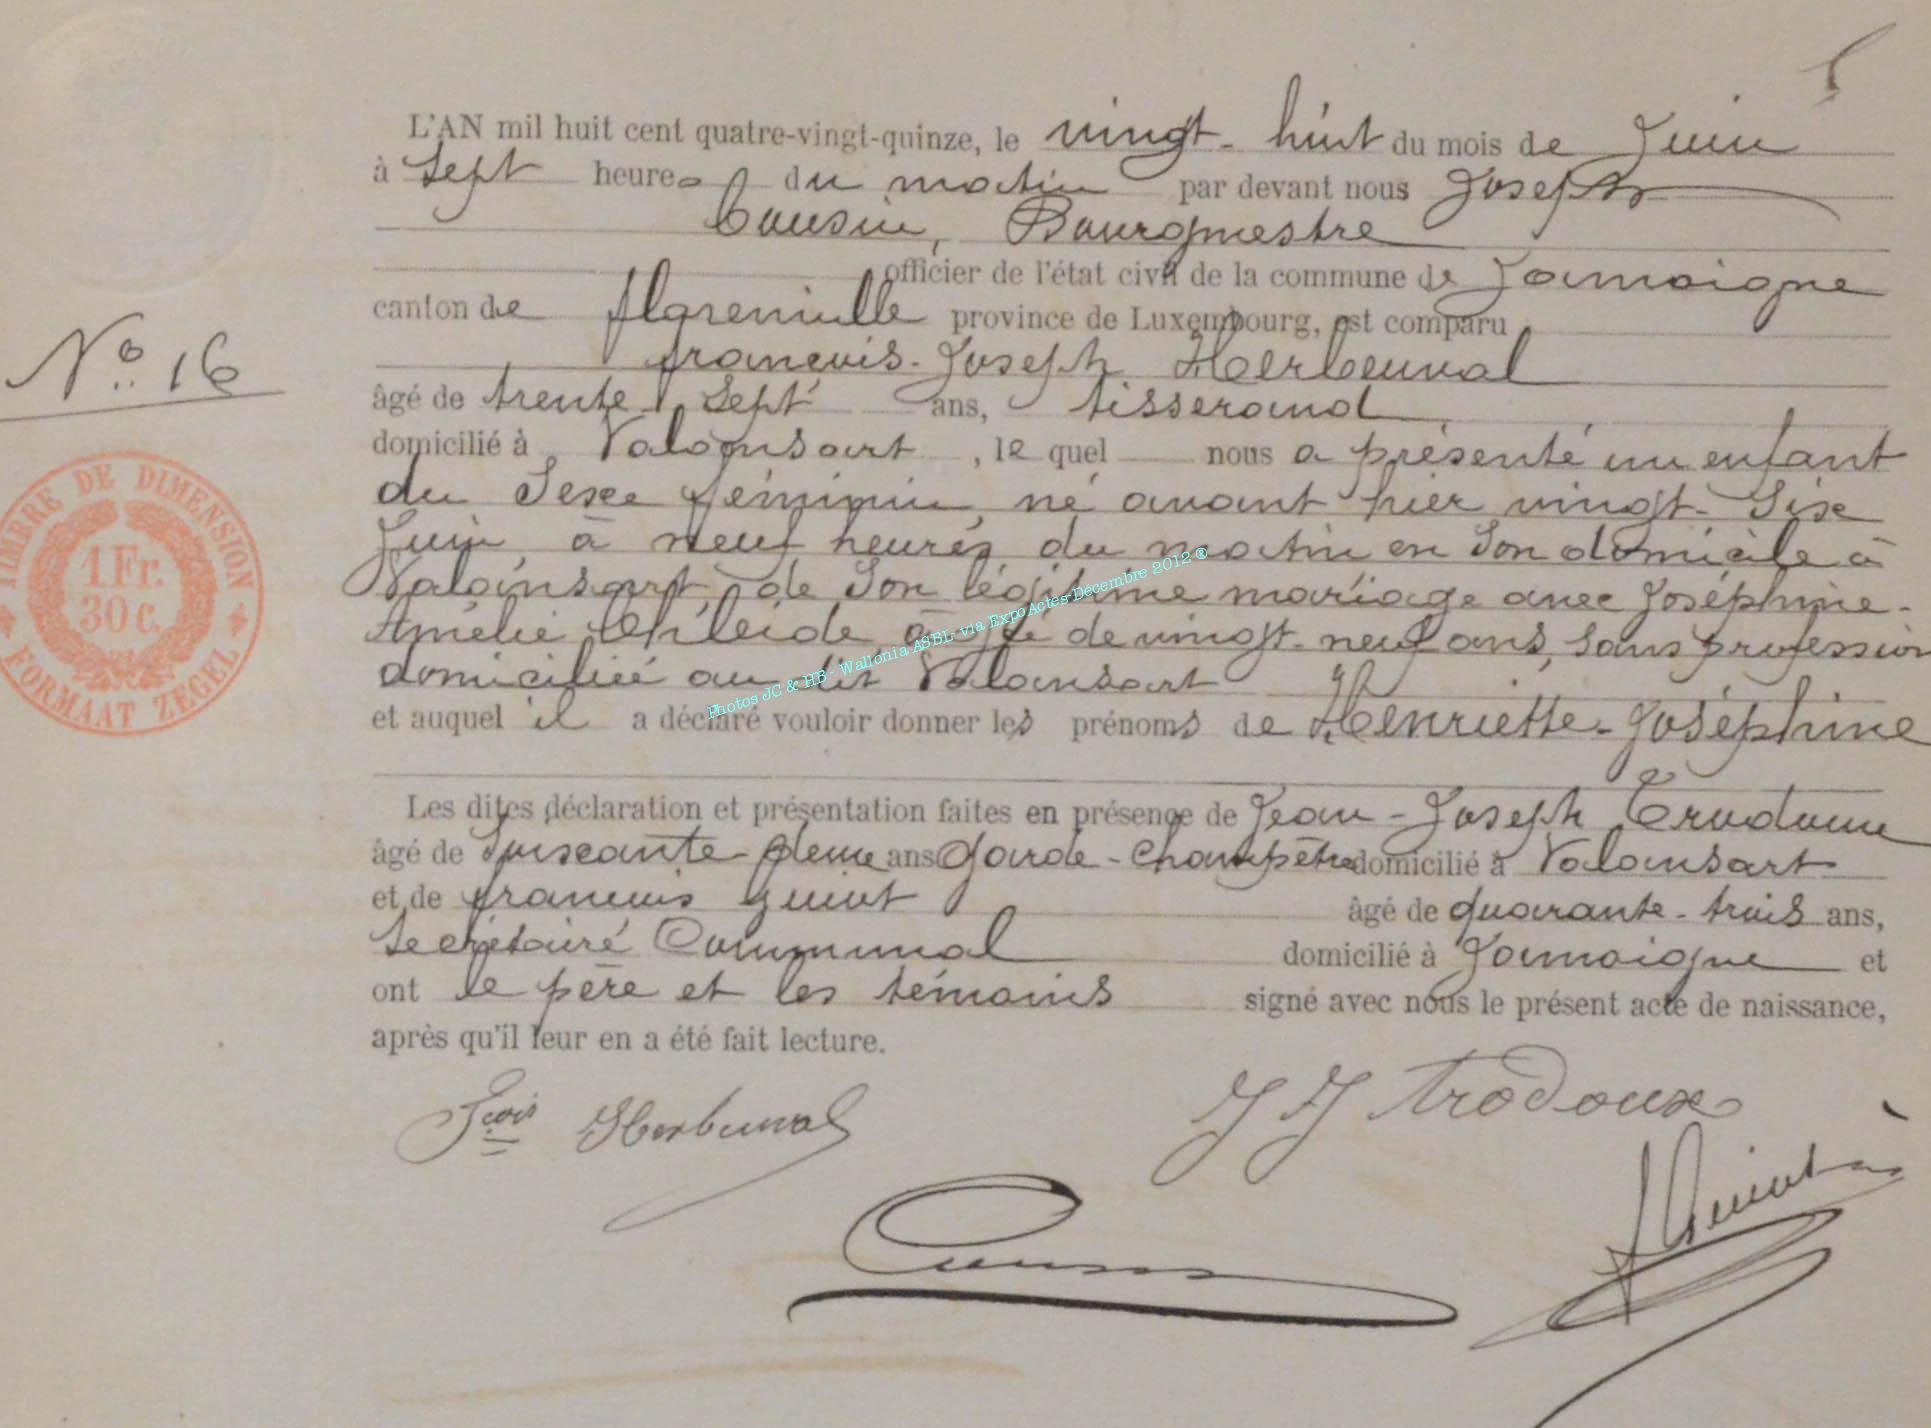 L'AN mil huit cent quatre-vingt-quinze, le vingt-huit du mois de Juin
à Sept heures du matin par devant nous Joseph
Cousin, Bourgmestre
officier de l'état civil de la commune de Jamoigne
canton de florenville province de Luxembourg, est comparu
françois-Joseph Herbeuval
No. 16
âgé de trente-Sept ans, tisserand
domicilié à Valansart, le quel nous a présenté un enfant
du Sexe féminin, né avant hier vingt-Six
Juin, à neuf heures du matin en Son domicile à
Valansart, de Son légitime mariage avec Joséphine-
Amélie âgé de vingt-neuf ans, Sans profession
domiciliée au dit Valansart
et auquel il a déclaré vouloir donner les prénoms de Henriette-Joséphine
Les dites déclaration et présentation faites en présence de Jean-Joseph
âgé de Soixante-deux ans Garde-Champêtre domicilié à Valansart
et de françois Guiot âgé de quarante-trois ans,
Secrétaire Communal domicilié à Jamoigne et
ont le père et les témoins signé avec nous le présent acte de naissance,
après qu'il leur en a été fait lecture.
Fcois Herbeuval
JJ trodoux
Cousin
TIMBRE DE DIMENSION
1 Fr.
30 c.
FORMAAT ZEGEL
Photos JC & HB - Wallonia ASBL via ExpoActes-Décembre 2012 ®